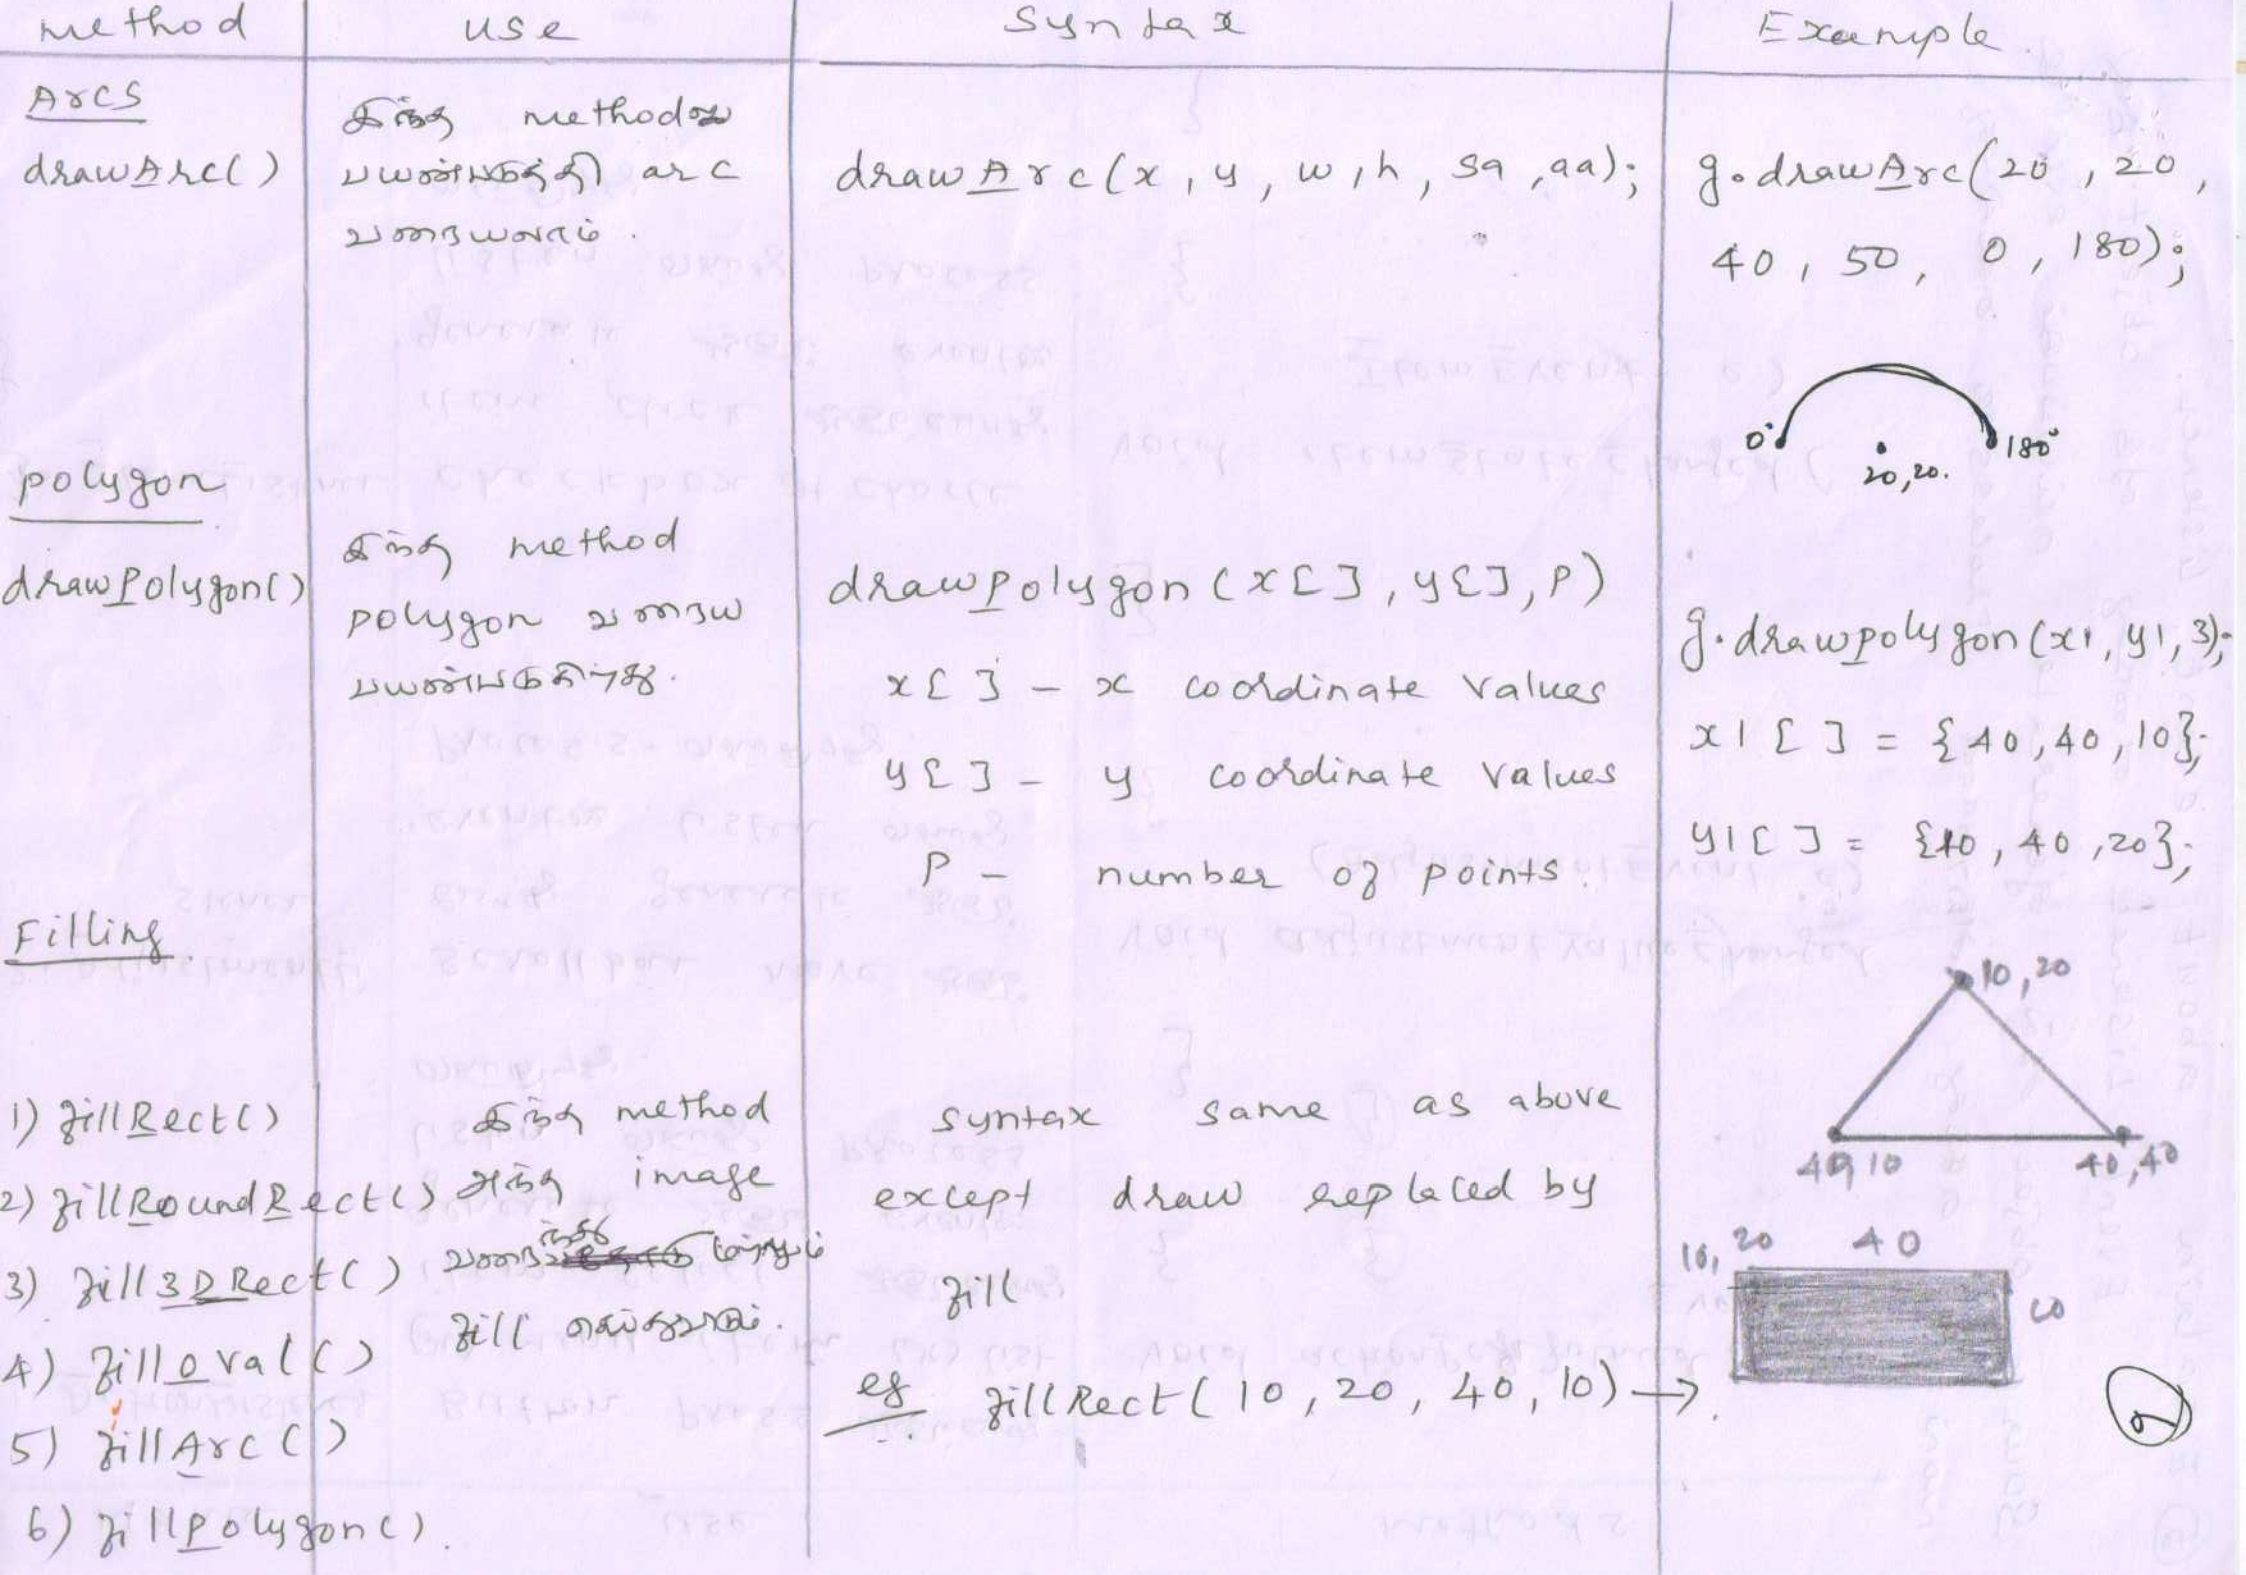 method use Syntax Example
Arcs
drawArc()
இந்த methodஐ
பயன்படுத்தி arc
வரையலாம்.
drawArc(x, y, w, h, sa, aa);
g.drawArc(20, 20,
40, 50, 0, 180);
0° 180°
20,20.
polygon
drawPolygon()
இந்த method
polygon வரைய
பயன்படுகிறது.
drawpolygon(x[], y[], P)
x[] - x coordinate values
y[] - y coordinate values
P - number of points.
g.drawpolygon(x1, y1, 3);
x1[] = {40, 40, 10};
y1[] = {10, 40, 20};
10, 20
40, 10 40, 40
Filling
1) fillRect()
2) fillRoundRect()
3) fill3DRect()
4) fillOval()
5) fillArc()
6) fillPolygon().
இந்த method
அந்த image
வரைந்து மற்றும்
fill செய்யலாம்.
syntax same as above
except draw replaced by
fill
eg fillRect(10, 20, 40, 10) →
10, 20 40